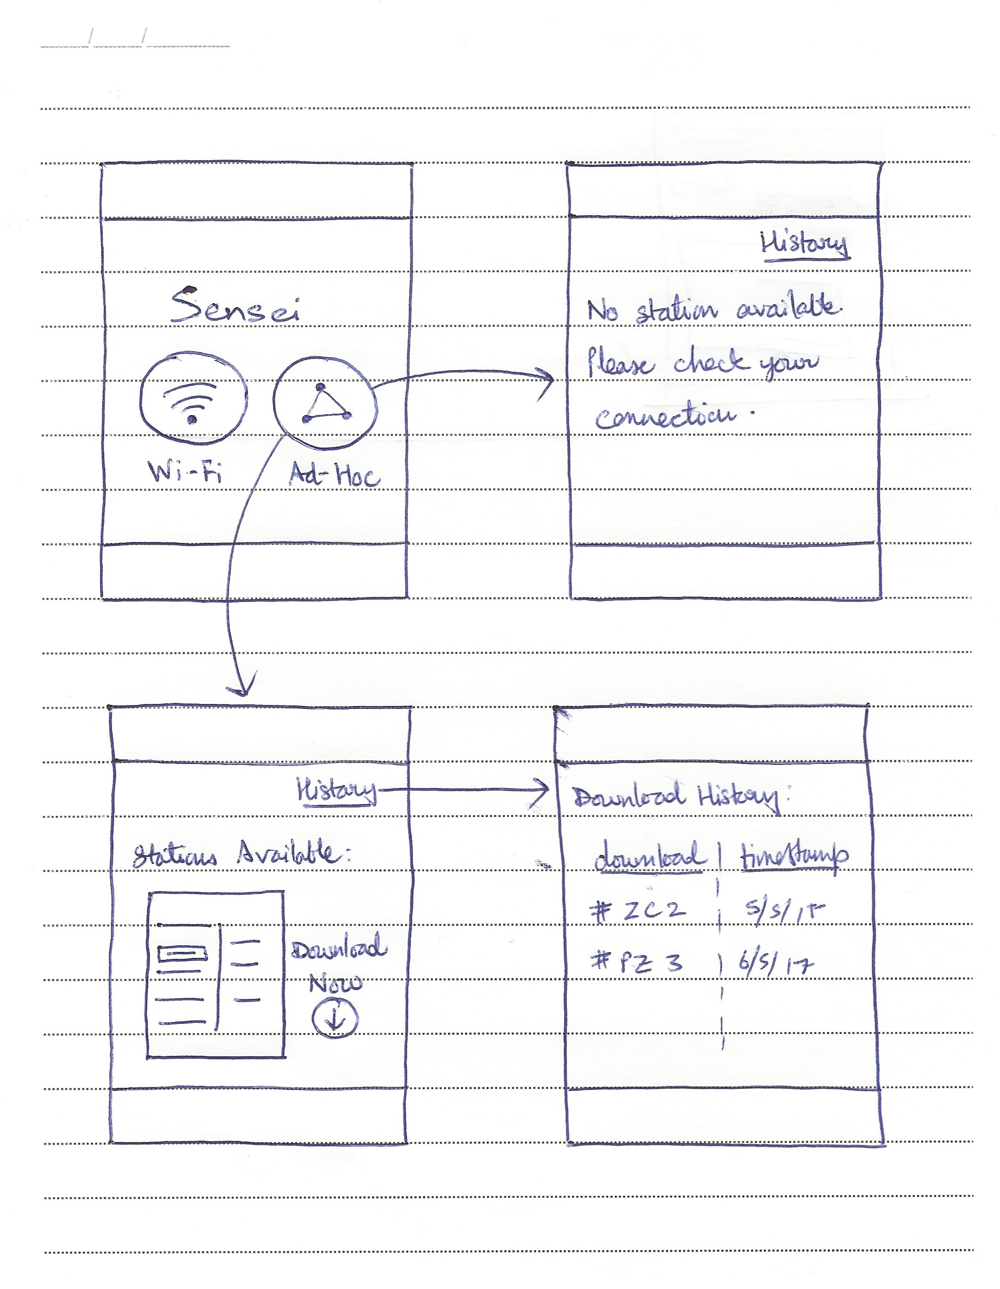 Sensei
Wi-Fi
Ad-Hoc
History
No station available.
Please check your
connection.
History
Stations Available:
Download
Now
Download History:
download | timestamp
# ZC2 | 5/5/17
# PZ 3 | 6/5/17